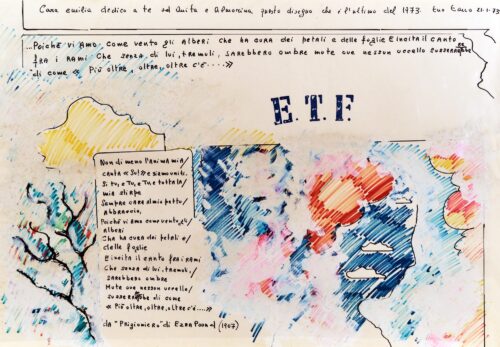 Cara emilia dedico a te ad Anita e Almorina, questo disegno che è l'ultimo del 1973. tuo Enzo
...Poiché vi Amo, come vento gli Alberi che ha cura dei petali e delle foglie E incita il canto
fra i rami Che senza di lui, tremuli, sarebbero ombre mute ove nessun uccello susserebbe
di come « Più oltre, oltre, oltre c'è....»
E.T.F.
Non di meno l'anima mia
canta « Sut » e siamo unite.
Si tu, e Tu, e Tu, e tutta la/
mia stirpe
Sempre care al mio petto/
Abbraccio,
Poiché vi Amo come vento, gli/
alberi
Che ha cura dei petali e/
delle foglie
E incita il canto fra i rami
Che senza di lui, tremuli,
sarebbero ombre
Mute ove nessun uccello/
di come
« Più oltre, oltre, oltre c'è....»
da "Prigioniero" di Ezra Pound (1907)